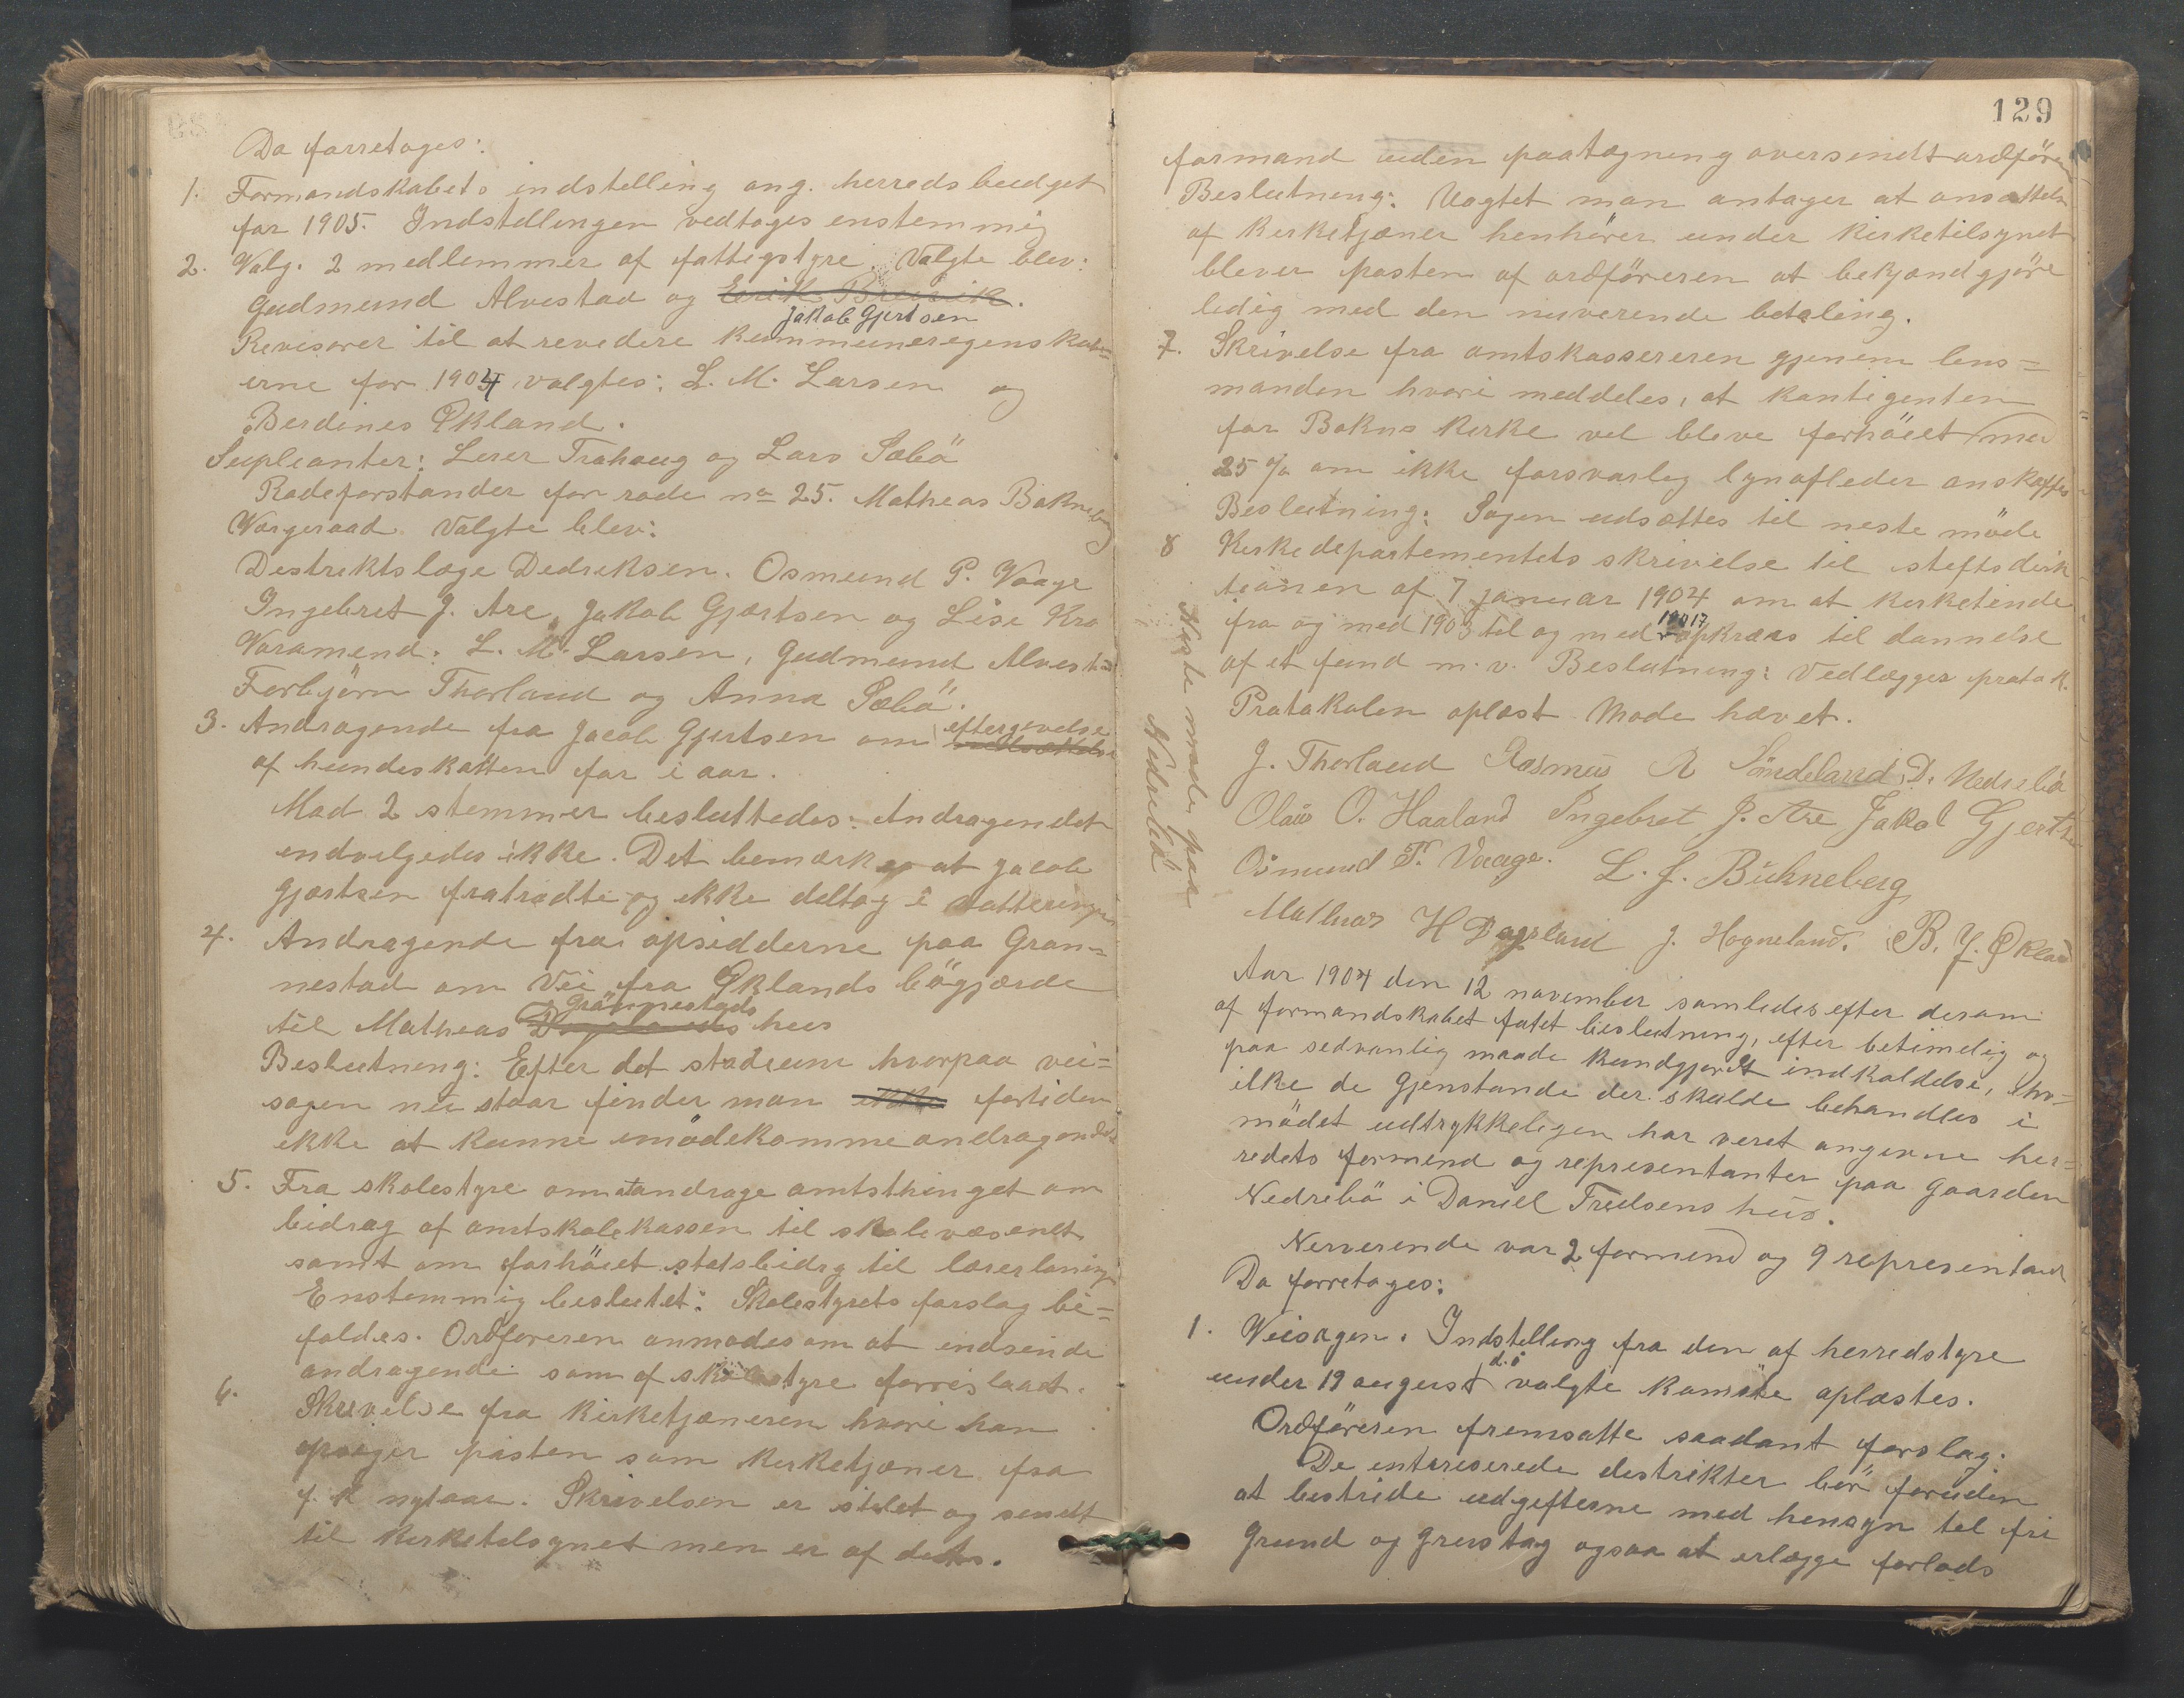 Da forretoges:
1. Formandskabets indstelling ang. herredsbudget
for 1905. Indstellingen vedtoges enstemmig
2. Valg. 2 medlemmer af fattigstyre. Valgte blev:
Gudmund Alvestad og Erik Brevik.
Jakob Gjertsen
Revisorer til at revedere kommuneregenskab=
erne for 1904 valgtes: L. M. Larsen og
Berdines Økland.
Supleanter: Lerer Trahaug og Lars Sæbö
Rodeforstander for rode no 25. Matheas Bokneberg
Vergeraad. Valgte blev:
Destriktslæge Dedreksen. Osmund P. Vaage
Ingebret J. Are, Jakob Gjærtsen og Lise Kro
Varamend: L. M. Larsen, Gudmund Alvestad
Torbjörn Thorland og Anna Sæbö.
3. Andragende fra Jacob Gjertsen om eftergevelse
af hundeskatten for i aar.
Mod 2 stemmer besluttedes: Andragendet
endvelgedes ikke. Det bemærkes at Jacob
Gjærtsen fratradte og ikke deltog i votteringen
4. Andragende fra opsidderne paa Gron=
nestad om Vei fra Øklands bögjærde
Grönnestads
til Matheas hus
Beslutning: Efter det stadium hvorpaa vei=
sagen nu staar finder man ikke fortiden
ikke at kunne imödekomme andragendet
5. Fra skolestyre om at andrage amtsthinget om
bidrag af amtskolekassen til skolevæsenet
samt om forhöiet statsbidrg til lærerlöninger
Enstemmig beslutet: Skolestyrets forslag bi=
faldes. Ordföreren anmodes om at endsende
andragende som af skolestyre forreslaaet.
6. Skrevelse fra kirketjæneren hvori han
opsæger posten som kerketjæner fra
f. k. nytaar. Skrivelsen er stilet og sendt
til kerketelsynet men er af dets.
129
formand uden paategning oversendt ordföreren
Beslutning: Uagtet man antager at ansættelse
af kerketjæner henhörer under kirketilsynet
blever posten af ordföreren at bekjændgjöre
ledig med den nuverende betaling.
7. Skrivelse fra amtskassereren gjenem lens=
manden hvori meddeles, at kontigenten
for Bokns kerke vel bleve forhöiet med
25 % om ikke forsvarleg lynafleder anskaffes
Beslutning: Sagen udsættes til neste möde
8 Kerkedepartementets skrivelse til steftsderk
tionen af 7 januar 1904 om at kerketiende
fra og med 1903 til og med 1917 opkræves til dannelse
af et fond m. v. Beslutning: Vedlegges protok.
Protokolen oplæst. Möde hævet.
Neste möde paa
Nedrebö
J. Thorland Rasmus R Söndeland D. Nedrebö
Olaus O. Haaland Ingebret J. Are Jakob Gjertsen
Osmund P. Vaage. L. J. Bukneberg
Matheas H Dagsland J. Hogneland. B. J. Økland
Aar 1904 den 12 november samledes efter derom
af formandskabet fatet beslutning, efter betimelig og
paa sedvanlig maade kundgjordt indkaldelse, hv=
ilke de Gjenstande der skulde behandles i
mödet udtrykkeligen har veret angevne her=
redets formend og representanter paa gaarden
Nedrebö i Daniel Tredsens hus.
Nerverende var 2 formend og 9 representant
Da forretoges:
1. Veisagen. Indstelling fra den af herredstyre
under 19 august d.å. valgte komite oplæstes.
Ordföreren fremsatte saadant forslag:
De entereserede destrikter bör foruden
at bestride udgefterne med hensyn tel fri
Grund og Grustag ogsaa at erlægge forlods